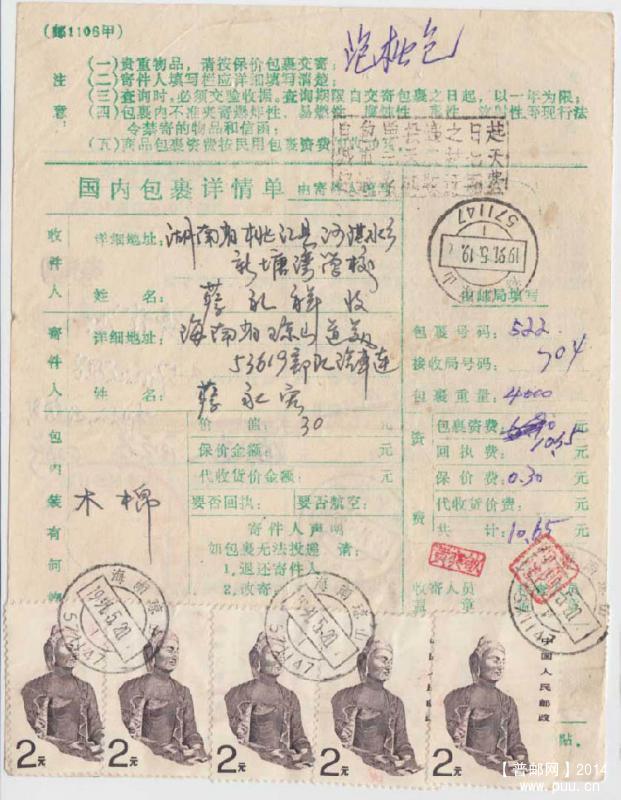 (邮1106甲)
泡枇包
注意:
(一)贵重物品,请按保价包裹交寄;
(二)寄件人填写栏应详细填写清楚;
(三)查询时,必须交验收据。查询期限自交寄包裹之日起,以一年为限;
(四)包裹内不准夹寄爆炸性、易燃性、腐蚀性、毒性、放射性
令禁寄的物品和信函;
(五)商品包裹资费按民用包裹资费
国内包裹详情单
由寄件人填写
571147
1991.5.19
由邮局填写
收件人
详细地址:湖南省桃江县
新塘湾学校
姓名:蔡礼祥 收
寄件人
详细地址:海南省琼山
53619部队汽车连
姓名:蔡永宏
包裹号码:522
接收局号码:704
包裹重量:4000
价值:30 元
保价金额: 元
代收货价金额: 元
要否回执: 要否航空:
资费
包裹资费:10.35 元
回执费: 元
保价费:0.30 元
代收货价费: 元
共计:10.65 元
包内装有何
木棉
寄件人声明
如包裹无法投递 请:
1.退还寄件人
2.改寄
收寄人员
海南琼山
1991.5.20
571147
海南琼山
1991.5.20
571147
2元
2元
2元
2元
2元
中国人民邮政
中国人民邮政
贴。
【普邮网】2014
www.puu.cn